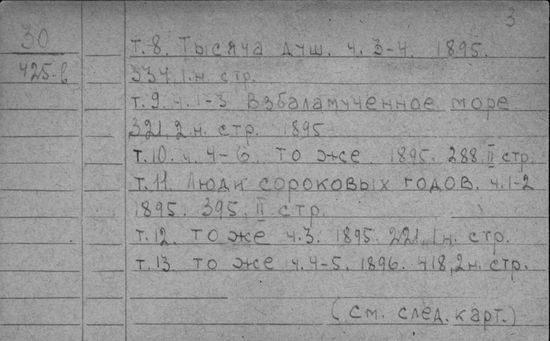 3
30
425-б
т.8. Тысяча душ. ч. 3-4. 1895.
334,1 н. стр.
т.9. ч. 1-3 Взбаламученное море
321,2 н. стр. 1895
т.10. ч. 4-6. то же 1895. 288. II стр.
т.11. Люди сороковых годов. ч.1-2
1895. 395. II стр.
т.12. то же ч.3. 1895. 221,1 н. стр.
т.13 то же ч.4-5. 1896. 418,2 н. стр.
(см. след. карт.)